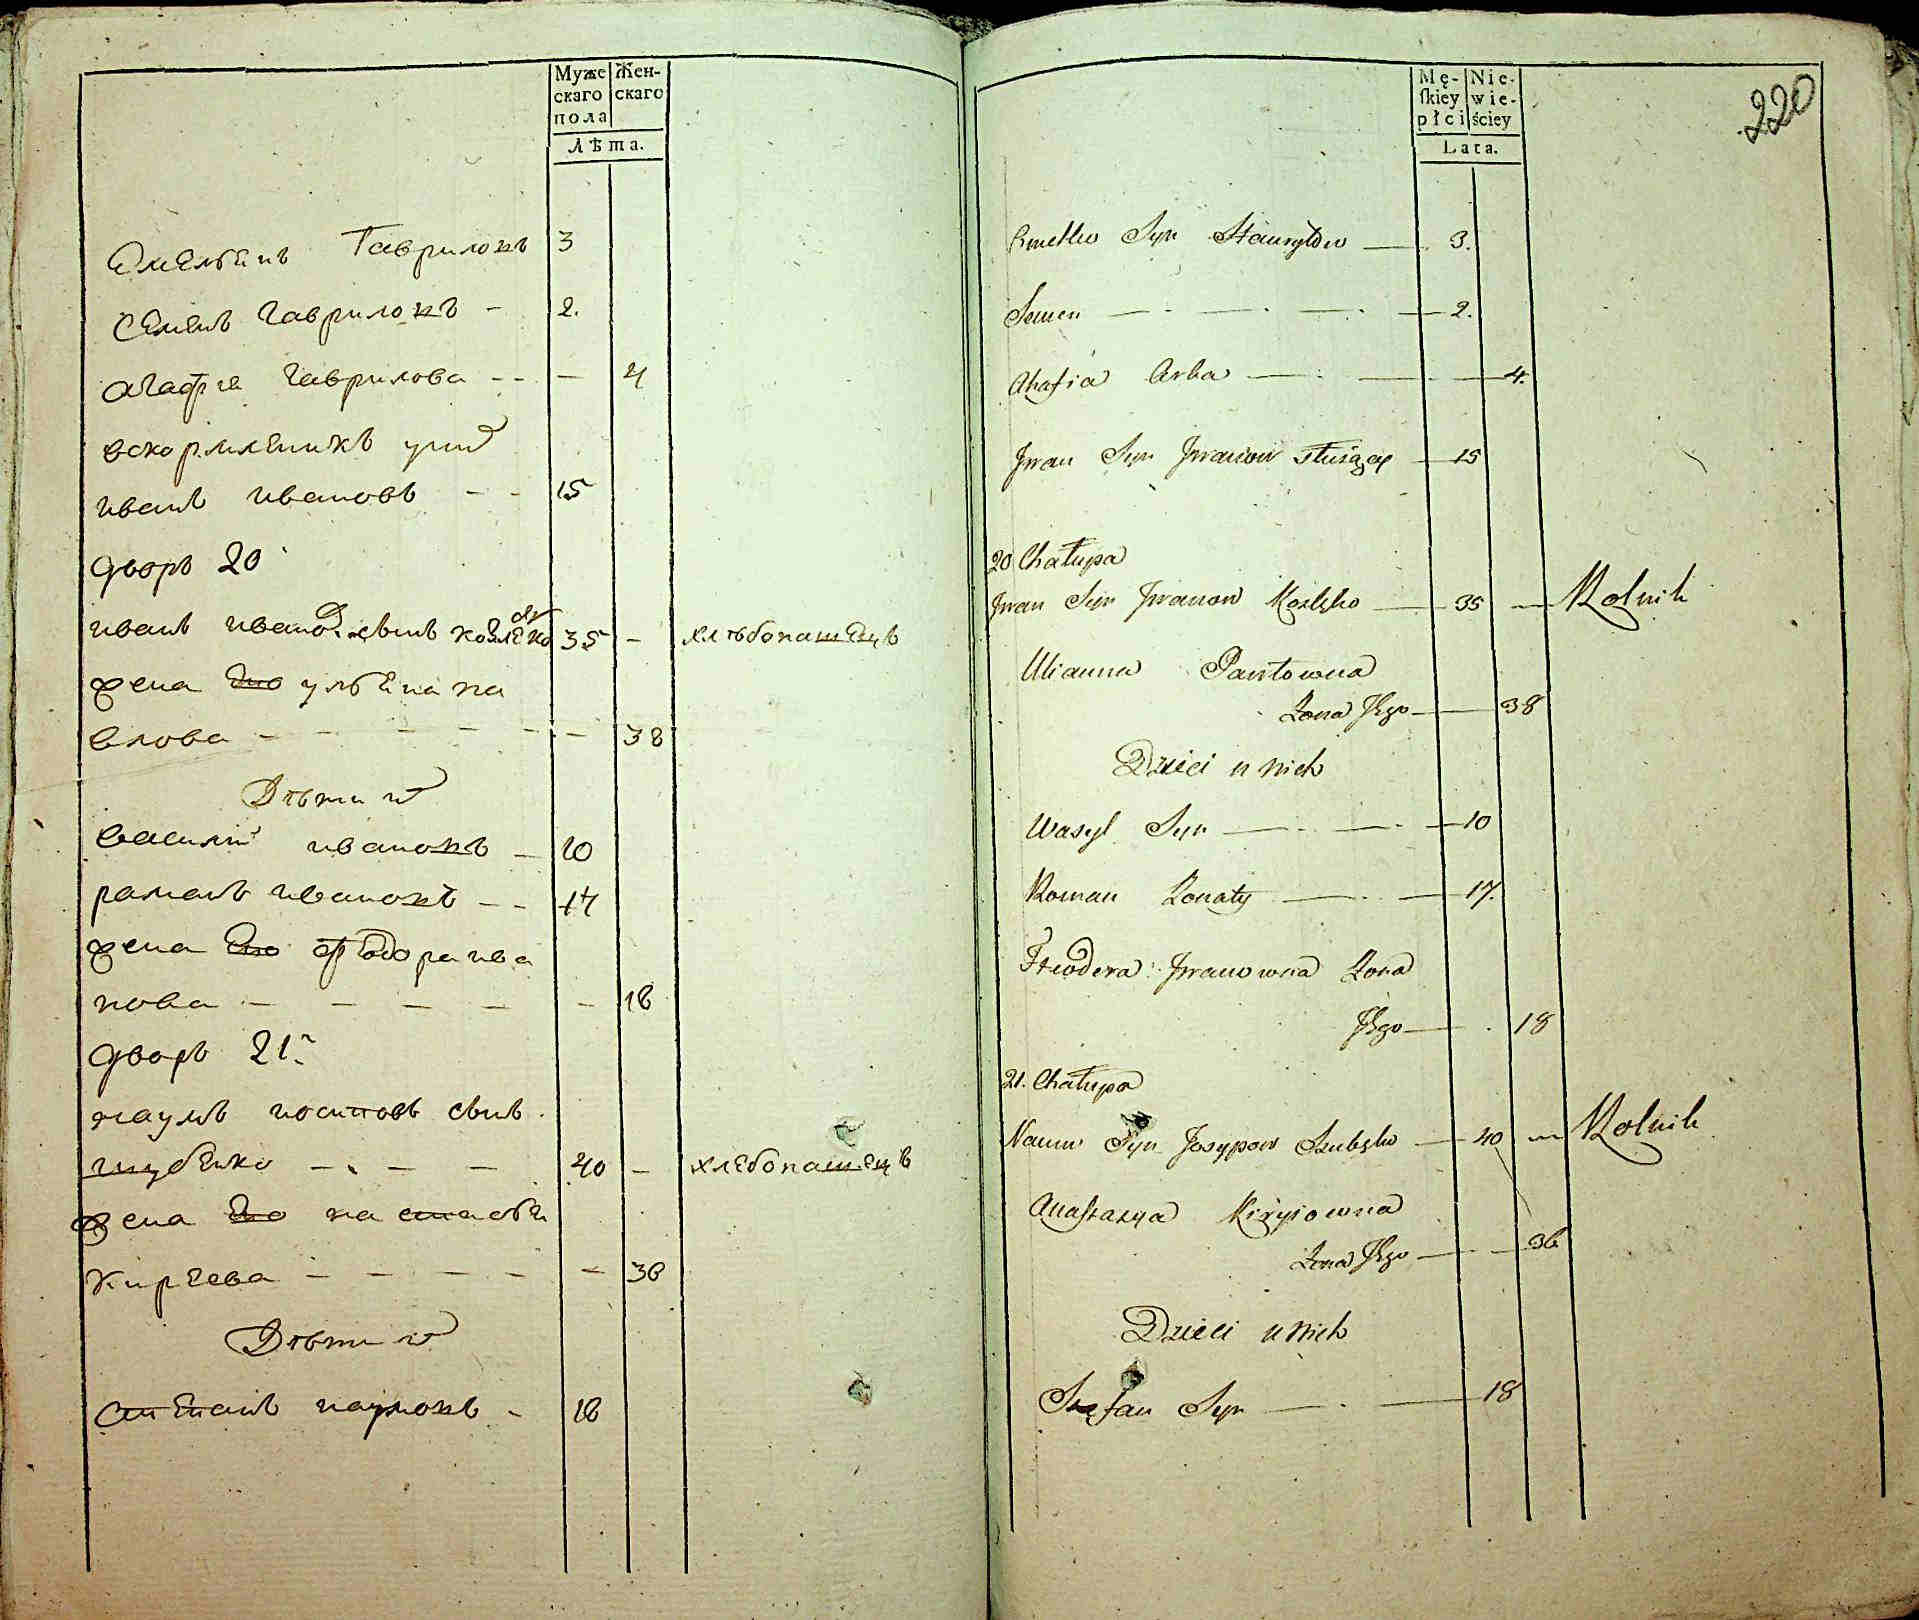 Муже скаго пола
Жен- скаго
Лѣта.
Емельянъ Гавриловъ 3
Семенъ Гавриловъ - 2.
агафiя гаврилова - - - 4
вскормленикъ у них
иванъ ивановъ - - 15
дворъ 20
иванъ ивановъ сынъ 35 - хлѣбопашецъ
жена его ульяна па
влова - - - - - - 38
Дѣти их
василий ивановъ - 10
раманъ ивановъ - - 17
жена его федора ива
нова - - - - - 18
дворъ 21.
наумъ иосиповъ сынъ
шубенко - - - - 40 - хлебопашецъ
жена его настасья
киреева - - - - - 36
Дѣти их
степанъ наумовъ - 18
220
Mę- ſkiey płci
Nie- wie- ściey
Lata.
Syn 3.
Semen 2.
Ahafia 4.
Jwan Syn Jwanow służący 15
20 Chałupa
Jwan Syn Jwanow 35 Rolnik
Ulianna Pawłowna
Żona Jego 38
Dzieci u nich
Wasyl Syn 10
Roman Żonaty 17.
Teodora Jwanowna Żona
Jego 18
21. Chałupa
Naum Syn Josypow 40 Rolnik
Anastazya
Żona Jego 36
Dzieci u nich
Stefan Syn 18